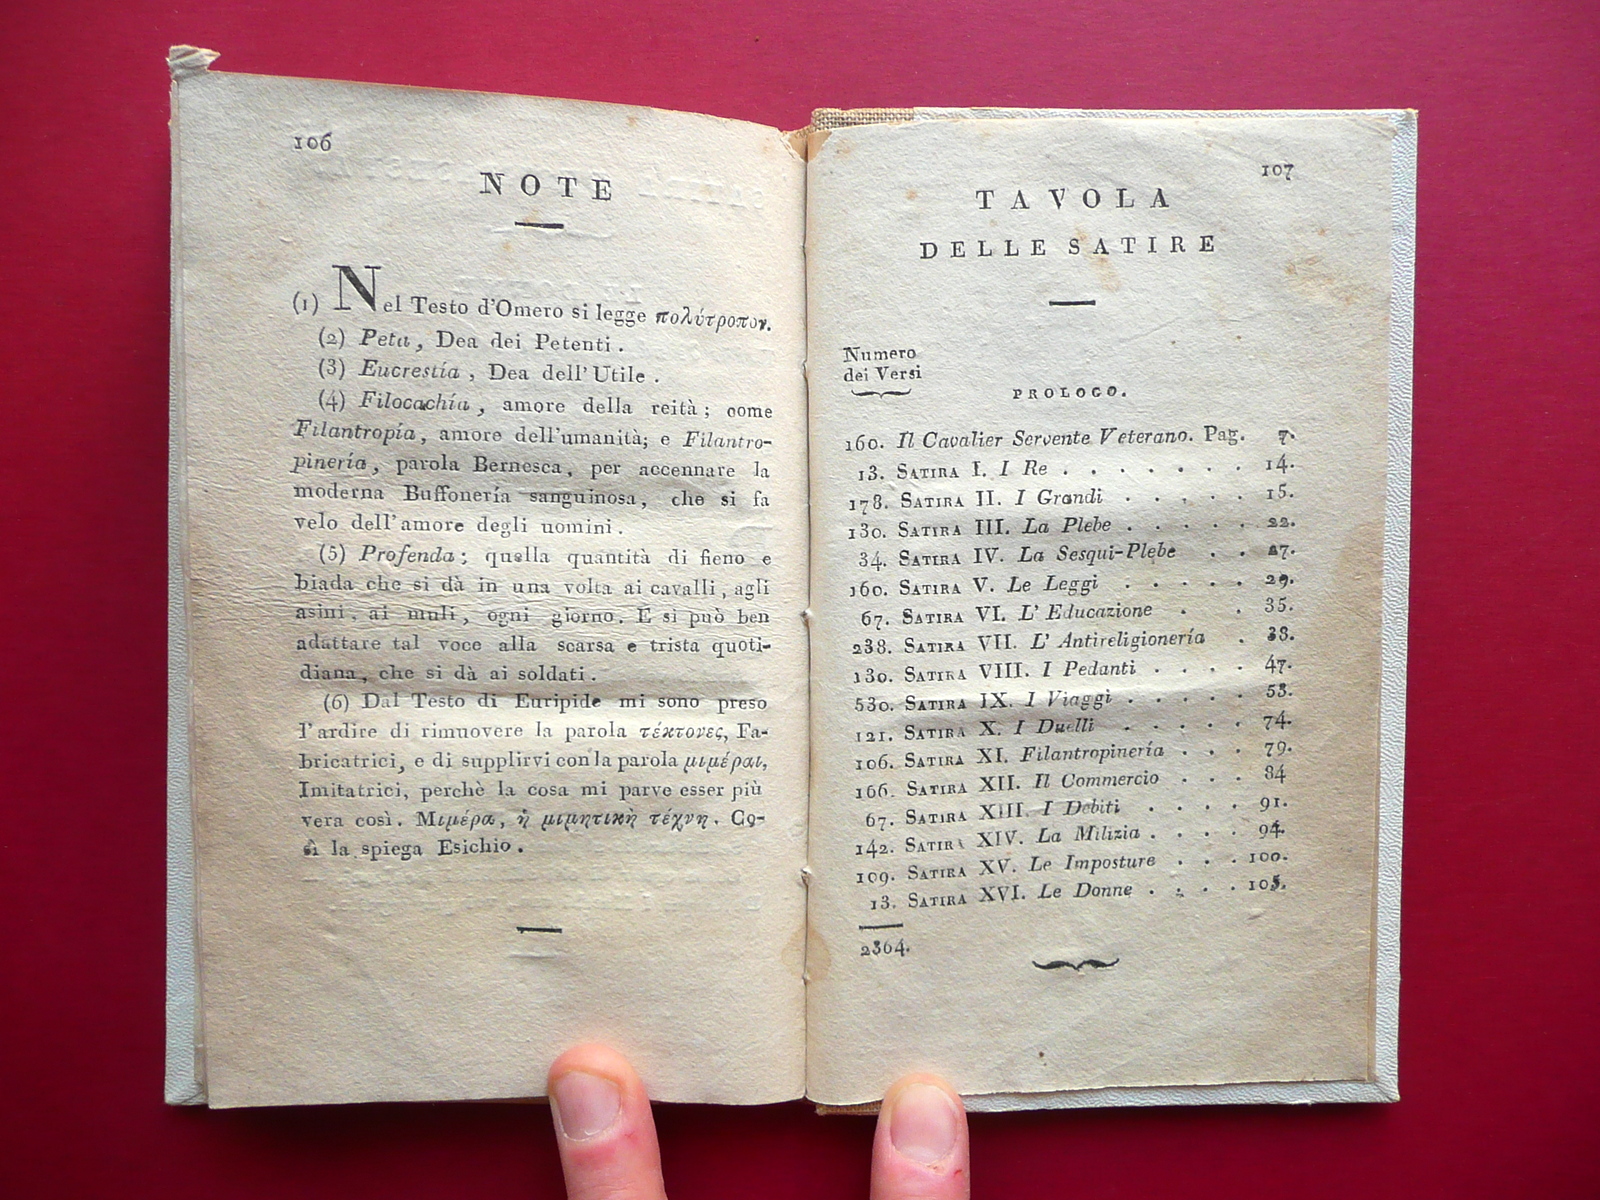 106
NOTE
(1) Nel Testo d'Omero si legge πολύτροπον.
(2) Peta, Dea dei Petenti.
(3) Eucrestía, Dea dell'Utile.
(4) Filocachía, amore della reità; come
Filantropía, amore dell'umanità; e Filantro-
pinería, parola Bernesca, per accennare la
moderna Buffonería sanguinosa, che si fa
velo dell'amore degli uomini.
(5) Profenda; quella quantità di fieno e
biada che si dà in una volta ai cavalli, agli
asini, ai muli, ogni giorno. E si può ben
adattare tal voce alla scarsa e trista quoti-
diana, che si dà ai soldati.
(6) Dal Testo di Euripide mi sono preso
l'ardire di rimuovere la parola τέκτονες, Fa-
bricatrici, e di supplirvi con la parola μιμέραι,
Imitatrici, perchè la cosa mi parve esser più
vera così. Μιμέρα, ἡ μιμητικὴ τέχνη. Co-
sì la spiega Esichio.
107
TAVOLA
DELLE SATIRE
Numero
dei Versi
PROLOGO.
160. Il Cavalier Servente Veterano. Pag. 7.
13. SATIRA I. I Re . . . . . . . 14.
178. SATIRA II. I Grandi . . . . . 15.
130. SATIRA III. La Plebe . . . . . 22.
34. SATIRA IV. La Sesqui-Plebe . . 27.
160. SATIRA V. Le Leggi . . . . . 29.
67. SATIRA VI. L' Educazione . . 35.
238. SATIRA VII. L' Antireligionería . 38.
130. SATIRA VIII. I Pedanti . . . . 47.
530. SATIRA IX. I Viaggi . . . . . 53.
121. SATIRA X. I Duelli . . . . . 74.
106. SATIRA XI. Filantropinería . . . 79.
166. SATIRA XII. Il Commercio . . . 84
67. SATIRA XIII. I Debiti . . . . 91.
142. SATIRA XIV. La Milizia . . . . 94.
109. SATIRA XV. Le Imposture . . . 100.
13. SATIRA XVI. Le Donne . . . . 105.
2364.